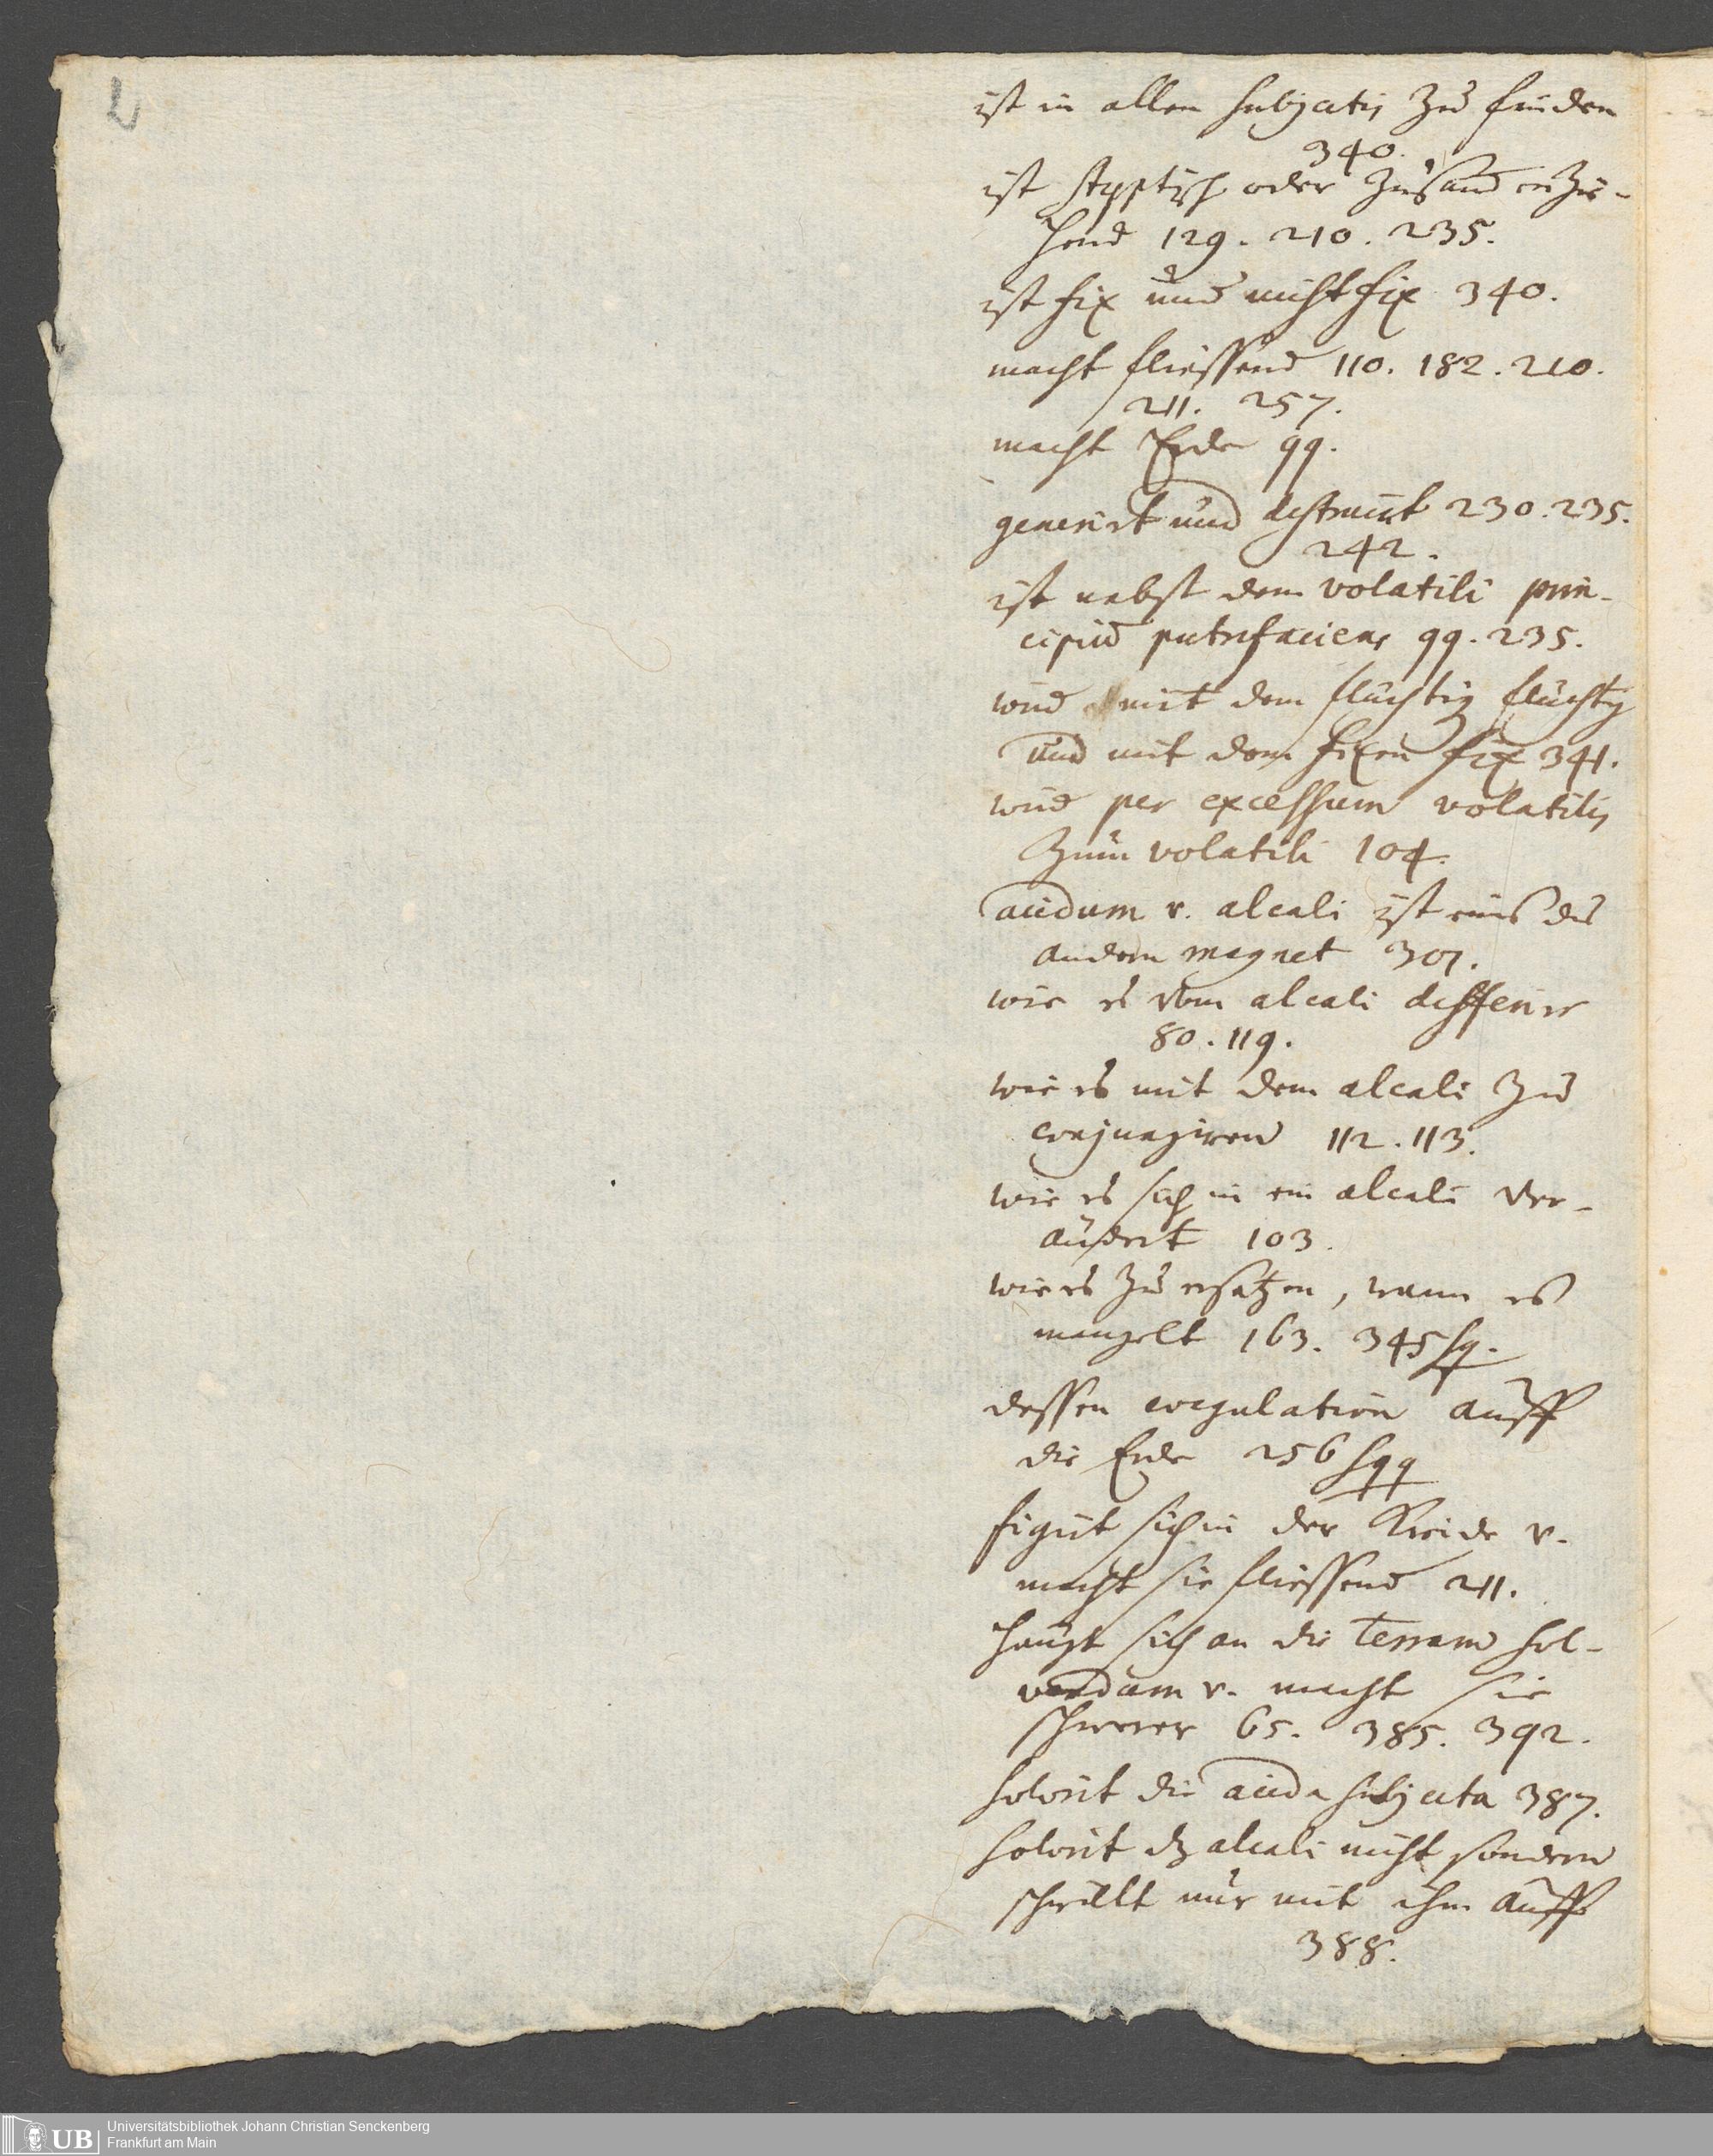 2
ist in allen subjectis zu finden
340.
ist styptisch oder zusammenzie-
hend 129. 210. 235.
ist fix und nicht fix 340.
macht fliessend 110. 182. 210.
211. 257.
macht Erde 99.
generirt und destruirt 230. 235.
242.
ist nebst dem volatili prin-
cipiū putrefaciens 99. 235.
wird mit dem flüchtig flüchtig
und mit dem fixen fix 341.
wird per excessum volatilis
zum volatili 104.
acidum v. alcali ist eins des
andern magnet 307.
wie es vom alcali differirt
80. 119.
wie es mit dem alcali zu
conjungiren 112. 113.
wie es sich in ein alcali ver-
ändert 103.
wie es zu ersetzen, wann es
mangelt 163. 345 sq.
dessen coagulation auff
die Erde 256 sqq
figirt sich in der Kreide v.
macht sie fliessend 211.
hengt sich an die Terram sol-
vendam v. macht sie
schwerer 65. 385. 392.
solvirt die acida subjecta 387.
solvirt dz alcali nicht sondern
schwillt nur mit ihm auff
388.
UB
Universitätsbibliothek Johann Christian Senckenberg
Frankfurt am Main